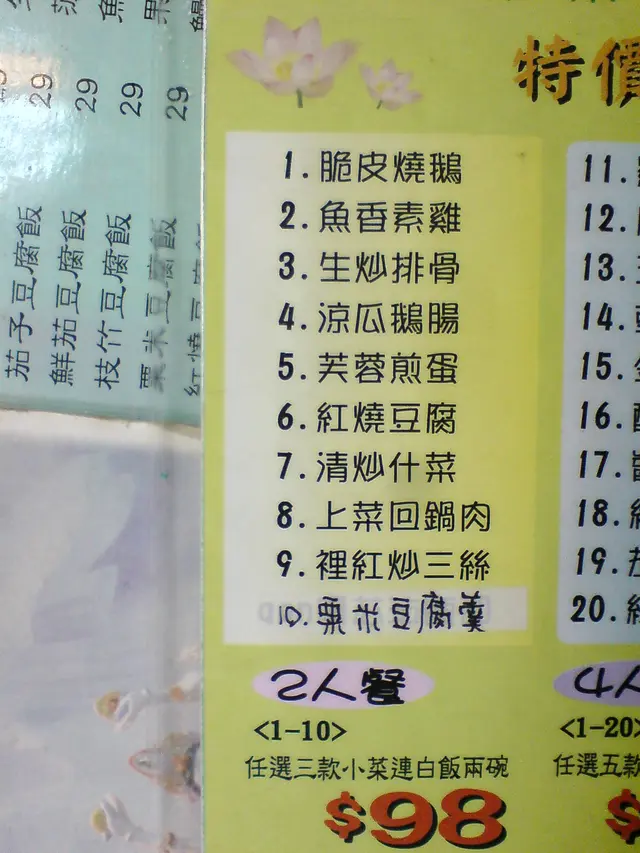 特價
1.脆皮燒鵝
2.魚香素雞
3.生炒排骨
4.涼瓜鵝腸
5.芙蓉煎蛋
6.紅燒豆腐
7.清炒什菜
8.上菜回鍋肉
9.裡紅炒三絲
10.粟米豆腐羹
2人餐
<1-10>
任選三款小菜連白飯兩碗
$98
11.
12.
13.
14.
15.
16.
17.
18.
19.
20.
4人
<1-20>
任選五款
$
茄子豆腐飯 29
鮮茄豆腐飯 29
枝竹豆腐飯 29
粟米豆腐飯 29